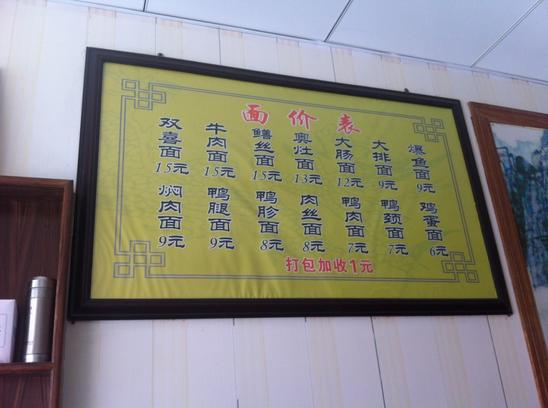 面价表
双喜面 牛肉面 鳝丝面 奥灶面 大肠面 大排面 爆鱼面
15元 15元 15元 13元 12元 9元 9元
焖肉面 鸭腿面 鸭胗面 肉丝面 鸭肉面 鸭颈面 鸡蛋面
9元 9元 8元 8元 7元 7元 6元
打包加收1元